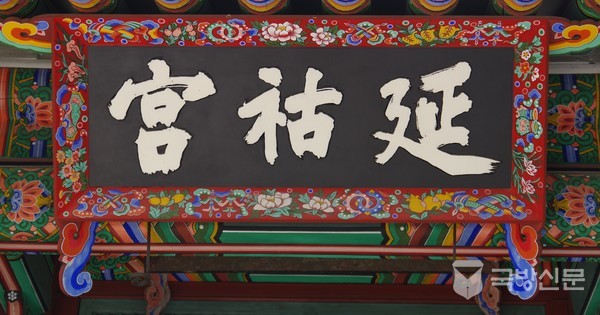 延祜宮
국방신문